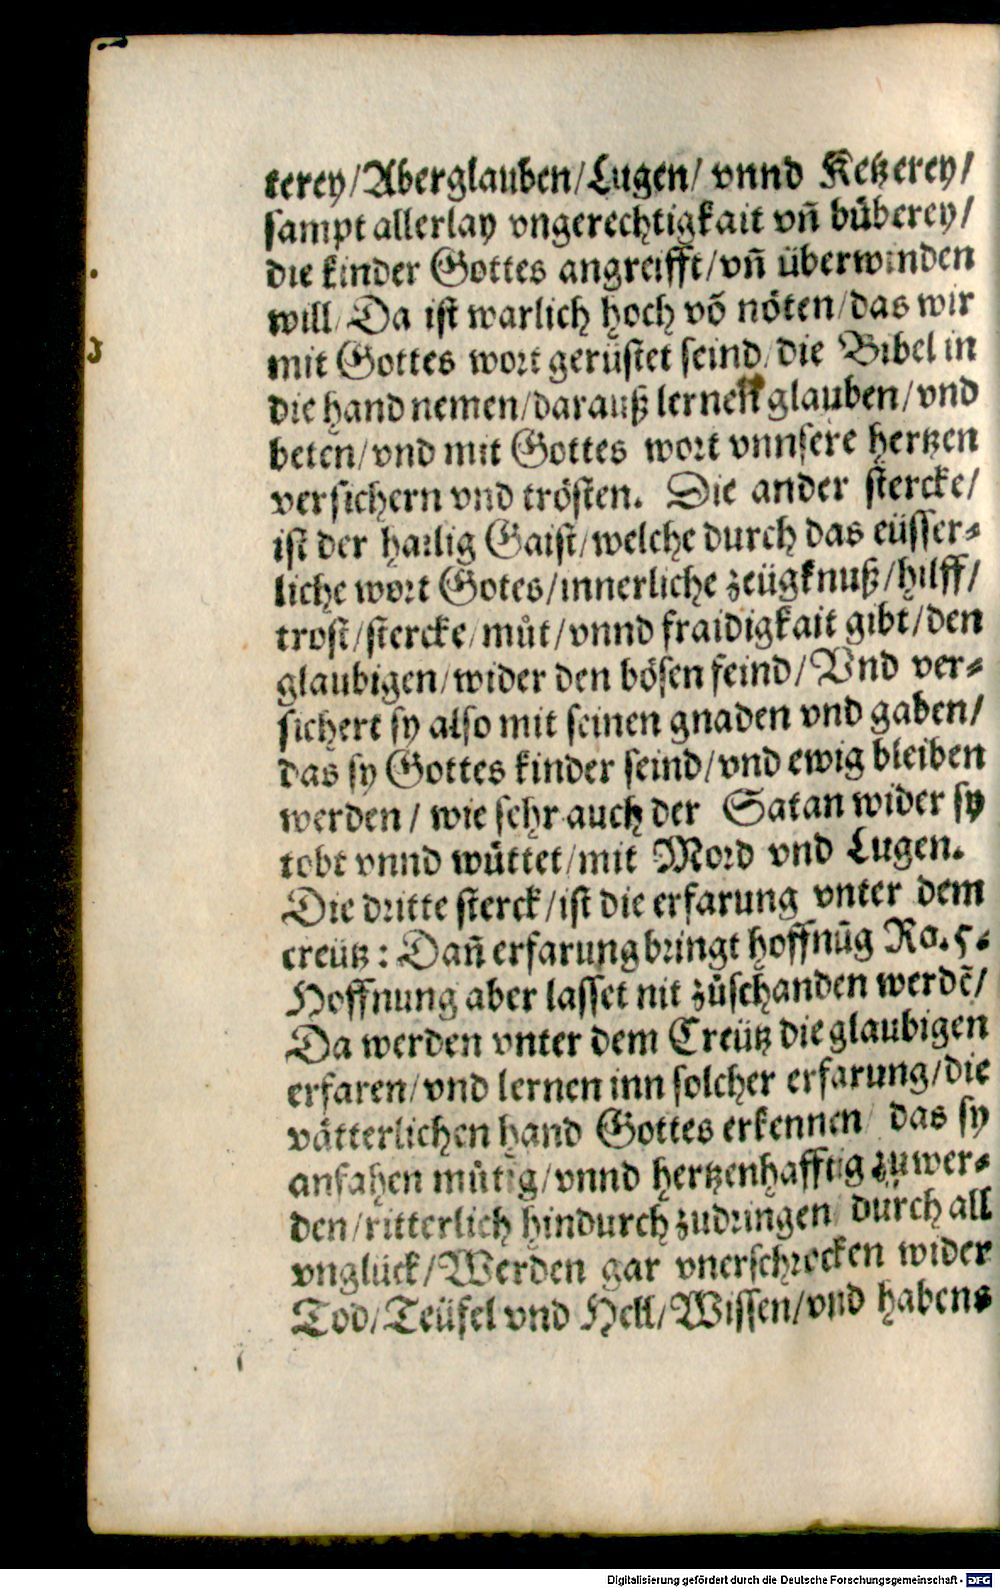 terey/Aberglauben/Lugen/ vnnd Ketzerey/
sampt allerlay vngerechtigkait vñ bůberey/
die kinder Gottes angreifft/vñ überwinden
will/Da ist warlich hoch võ nöten/das wir
mit Gottes wort gerüstet seind/die Bibel in
die hand nemen/darauß lernen glauben/vnd
beten/vnd mit Gottes wort vnnsere hertzen
versichern vnd trösten. Die ander stercke/
ist der hailig Gaist/welche durch das eüsser-
liche wort Gotes/innerliche zeügknuß/hilff/
trost/stercke/můt/vnnd fraidigkait gibt/den
glaubigen/wider den bösen feind/Vnd ver-
sichert sy also mit seinen gnaden vnd gaben/
das sy Gottes kinder seind/vnd ewig bleiben
werden/ wie sehr auch der Satan wider sy
tobt vnnd wüttet/mit Mord vnd Lugen.
Die dritte sterck/ist die erfarung vnter dem
creütz: Dañ erfarung bringt hoffnũg Ro.5.
Hoffnung aber lasset nit zůschanden werdẽ/
Da werden vnter dem Creütz die glaubigen
erfaren/vnd lernen inn solcher erfarung/die
vätterlichen hand Gottes erkennen/ das sy
anfahen můtig/vnnd hertzenhafftig zů wer-
den/ritterlich hindurch zudringen/ durch all
vnglück/Werden gar vnerschrocken wider
Tod/Teüfel vnd Hell/Wissen/vnd habens
Digitalisierung gefördert durch die Deutsche Forschungsgemeinschaft - DFG